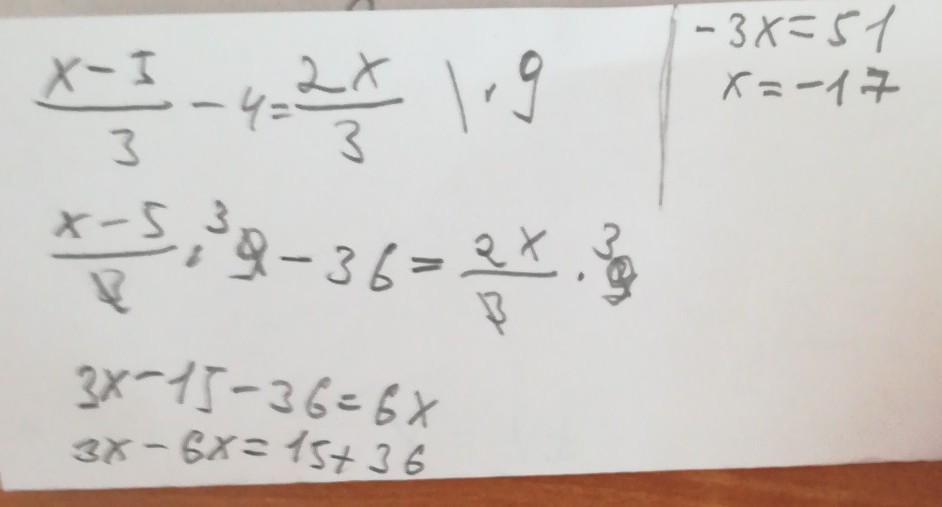 x-5/3 - 4 = 2x/3 \ · 9
x-5/3 · 9 3 - 36 = 2x/3 · 9 3
3x-15-36=6x
3x-6x=15+36
-3x=51
x=-17